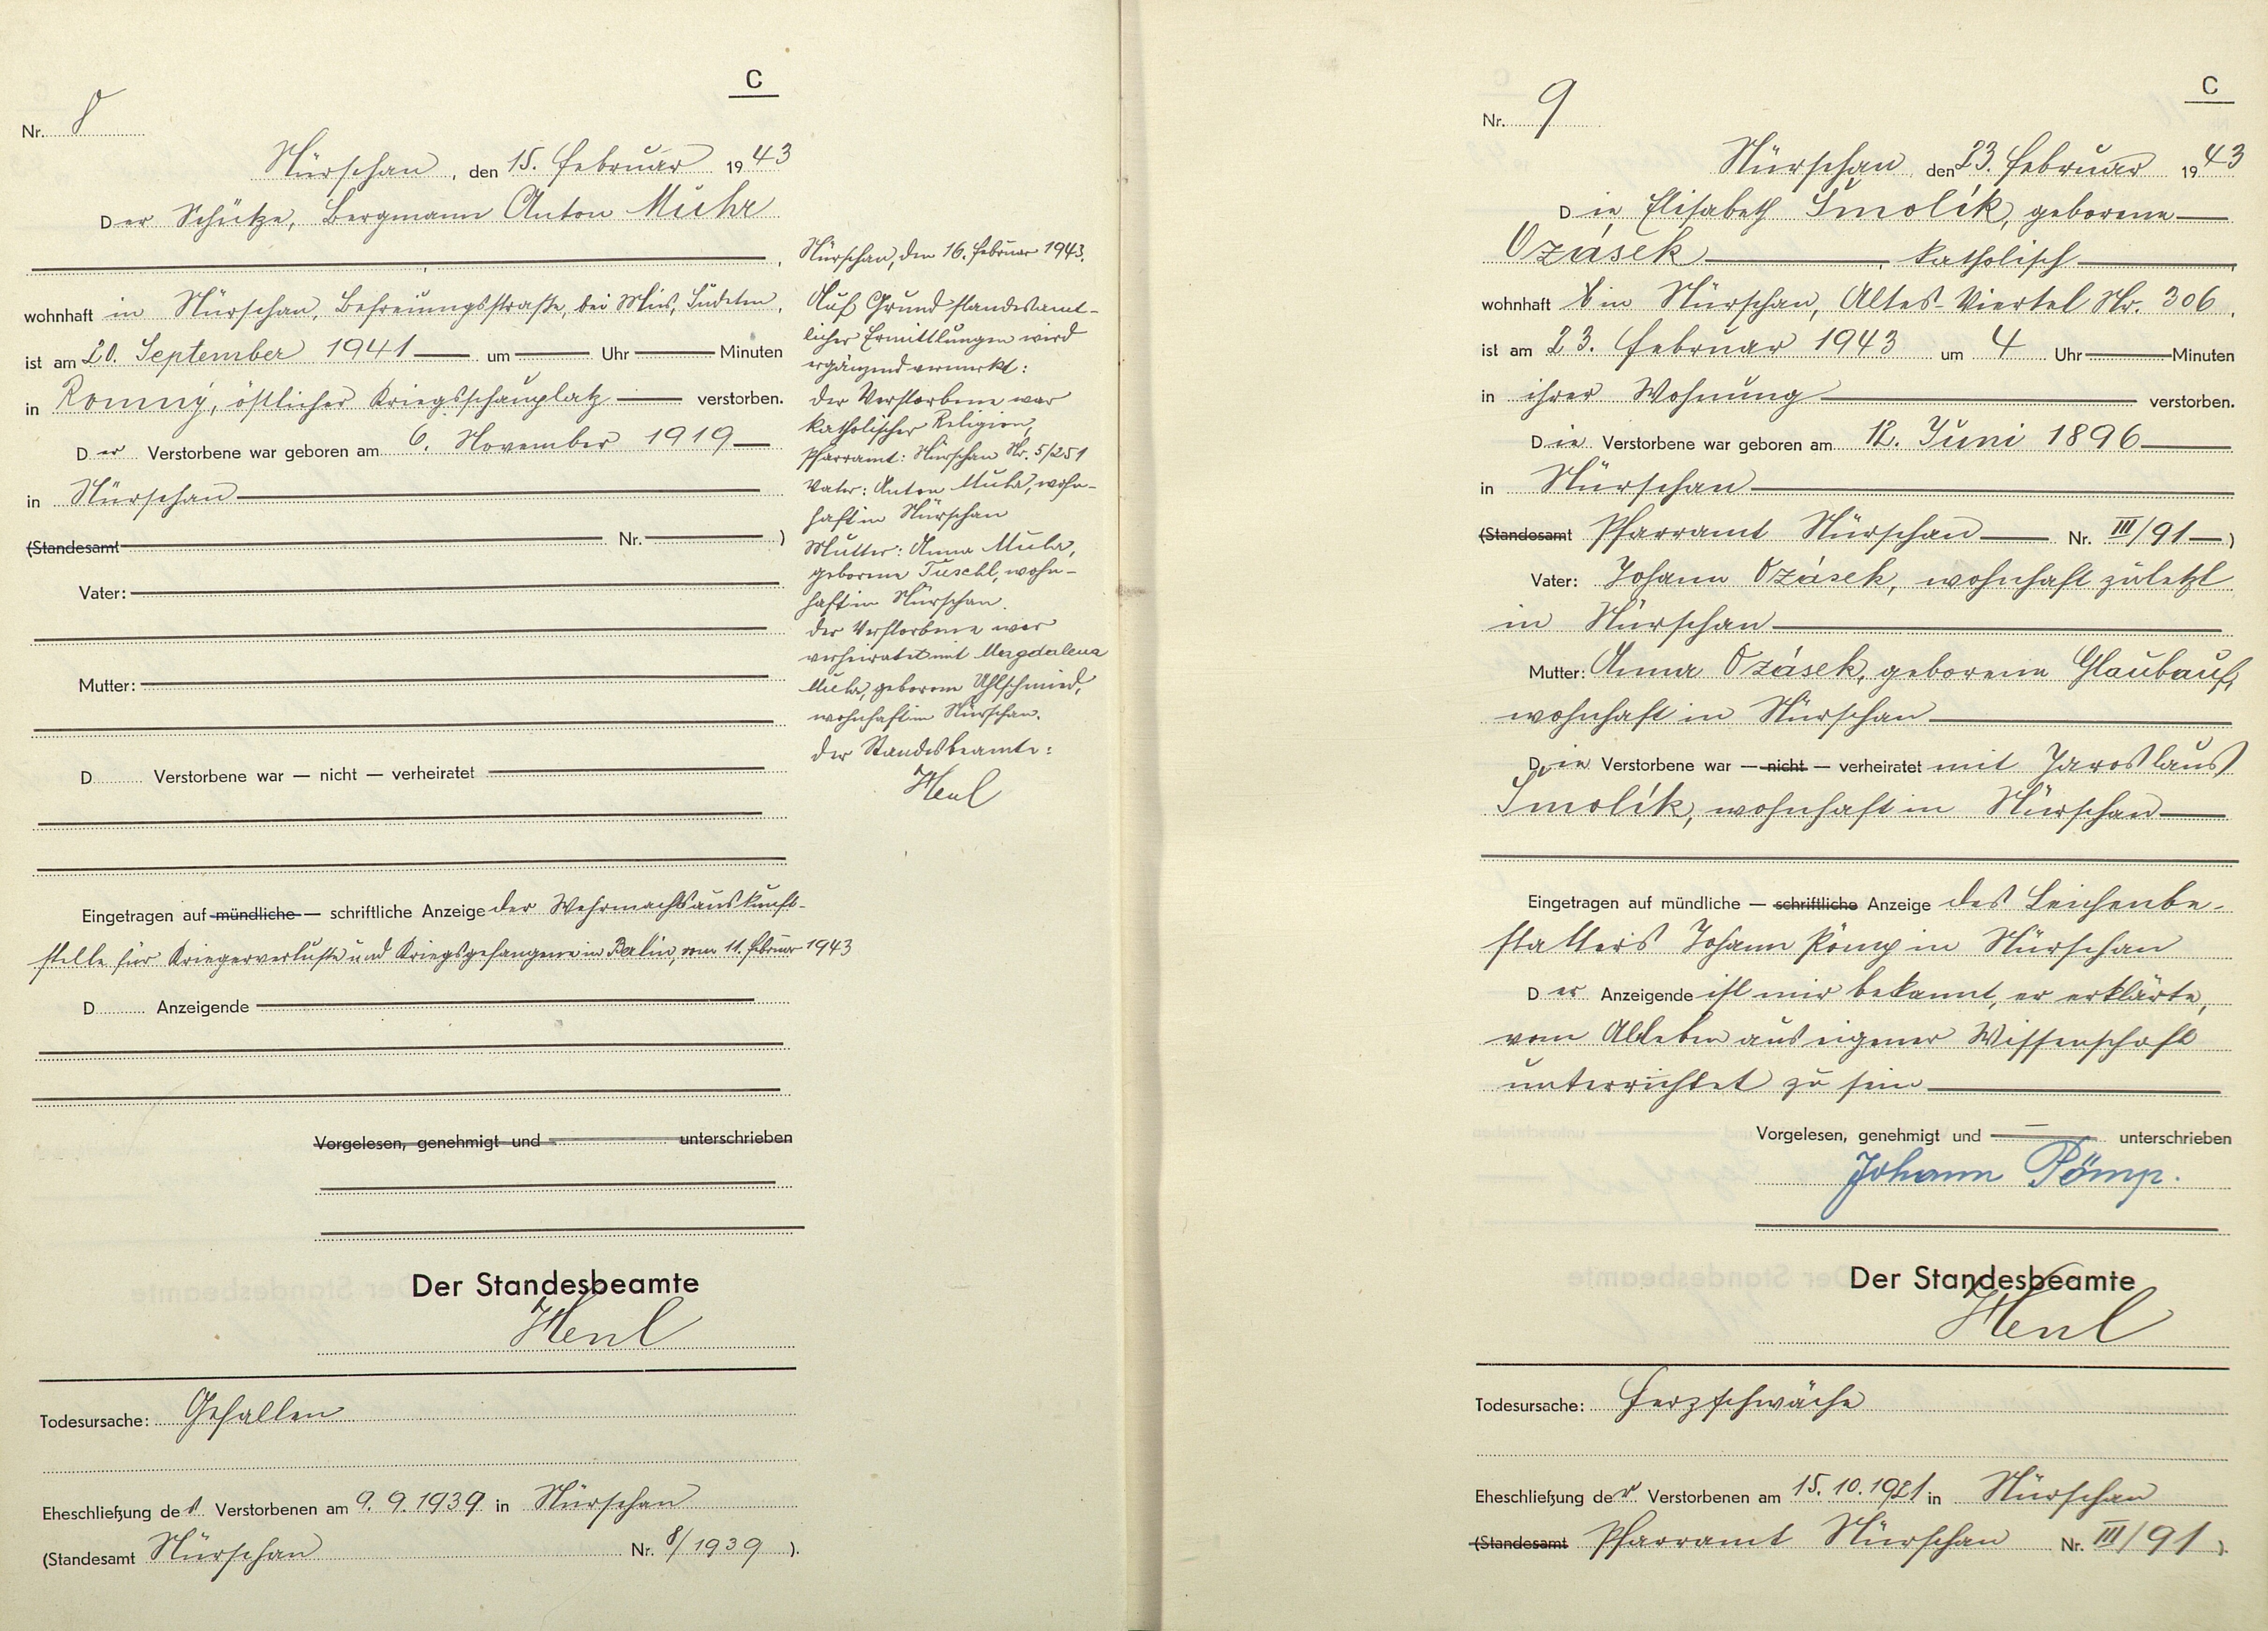 C
Nr. 8
Nürschan, den 15. Februar 1943
Der Schütze, Bergmann Anton Muhr
wohnhaft in Nürschan, Befreiungsstraße, bei Mies, Sudeten,
ist am 20. September 1941 um Uhr Minuten
in Romny, östlicher Kriegsschauplatz verstorben.
Der Verstorbene war geboren am 6. November 1919
in Nürschan
(Standesamt Nr. )
Vater:
Mutter:
D Verstorbene war — nicht — verheiratet
Eingetragen auf mündliche — schriftliche Anzeige der Wehrmachtsauskunft-
stelle für Kriegerverluste und Kriegsgefangene in Berlin, vom 11. Februar 1943
D Anzeigende
Vorgelesen, genehmigt und unterschrieben
Der Standesbeamte
Henl
Todesursache: Gefallen
Eheschließung des Verstorbenen am 9.9.1939 in Nürschan
(Standesamt Nürschan Nr. 8/1939 ).
Nürschan, den 16. Februar 1943.
Auf Grund standesamt-
licher Ermittlungen wird
ergänzend vermerkt:
der Verstorbene war
katholischer Religion,
Pfarramt: Nürschan Nr. 5/251
Vater: Anton Muhr, wohn-
haft in Nürschan
Mutter: Anna Muhr,
geborene Tuschl, wohn-
haft in Nürschan.
der Verstorbene war
verheiratet mit Magdalena
Muhr, geborene Uhlschmied,
wohnhaft in Nürschan.
der Standesbeamte:
Henl
C
Nr. 9
Nürschan, den 23. Februar 1943
Die Elisabeth Smolík, geborene
Ozásek, katholisch
wohnhaft in Nürschan, Altes-Viertel Nr. 306,
ist am 23. Februar 1943 um 4 Uhr Minuten
in ihrer Wohnung verstorben.
Die Verstorbene war geboren am 12. Juni 1896
in Nürschan
(Standesamt Pfarramt Nürschan Nr. III/91 )
Vater: Johann Ozásek, wohnhaft zuletzt
in Nürschan
Mutter: Anna Ozásek, geborene Glaubauf,
wohnhaft in Nürschan
Die Verstorbene war — nicht — verheiratet mit Jaroslaus
Smolík, wohnhaft in Nürschan
Eingetragen auf mündliche — schriftliche Anzeige des Leichenbe-
statters Johann Pömp in Nürschan
Der Anzeigende ist mir bekannt, er erklärte,
vom Ableben aus eigener Wissenschaft
unterrichtet zu sein
Vorgelesen, genehmigt und unterschrieben
Johann Pömp.
Der Standesbeamte
Henl
Todesursache: Herzschwäche
Eheschließung der Verstorbenen am 15.10.1921 in Nürschan
(Standesamt Pfarramt Nürschan Nr. III/91 ).